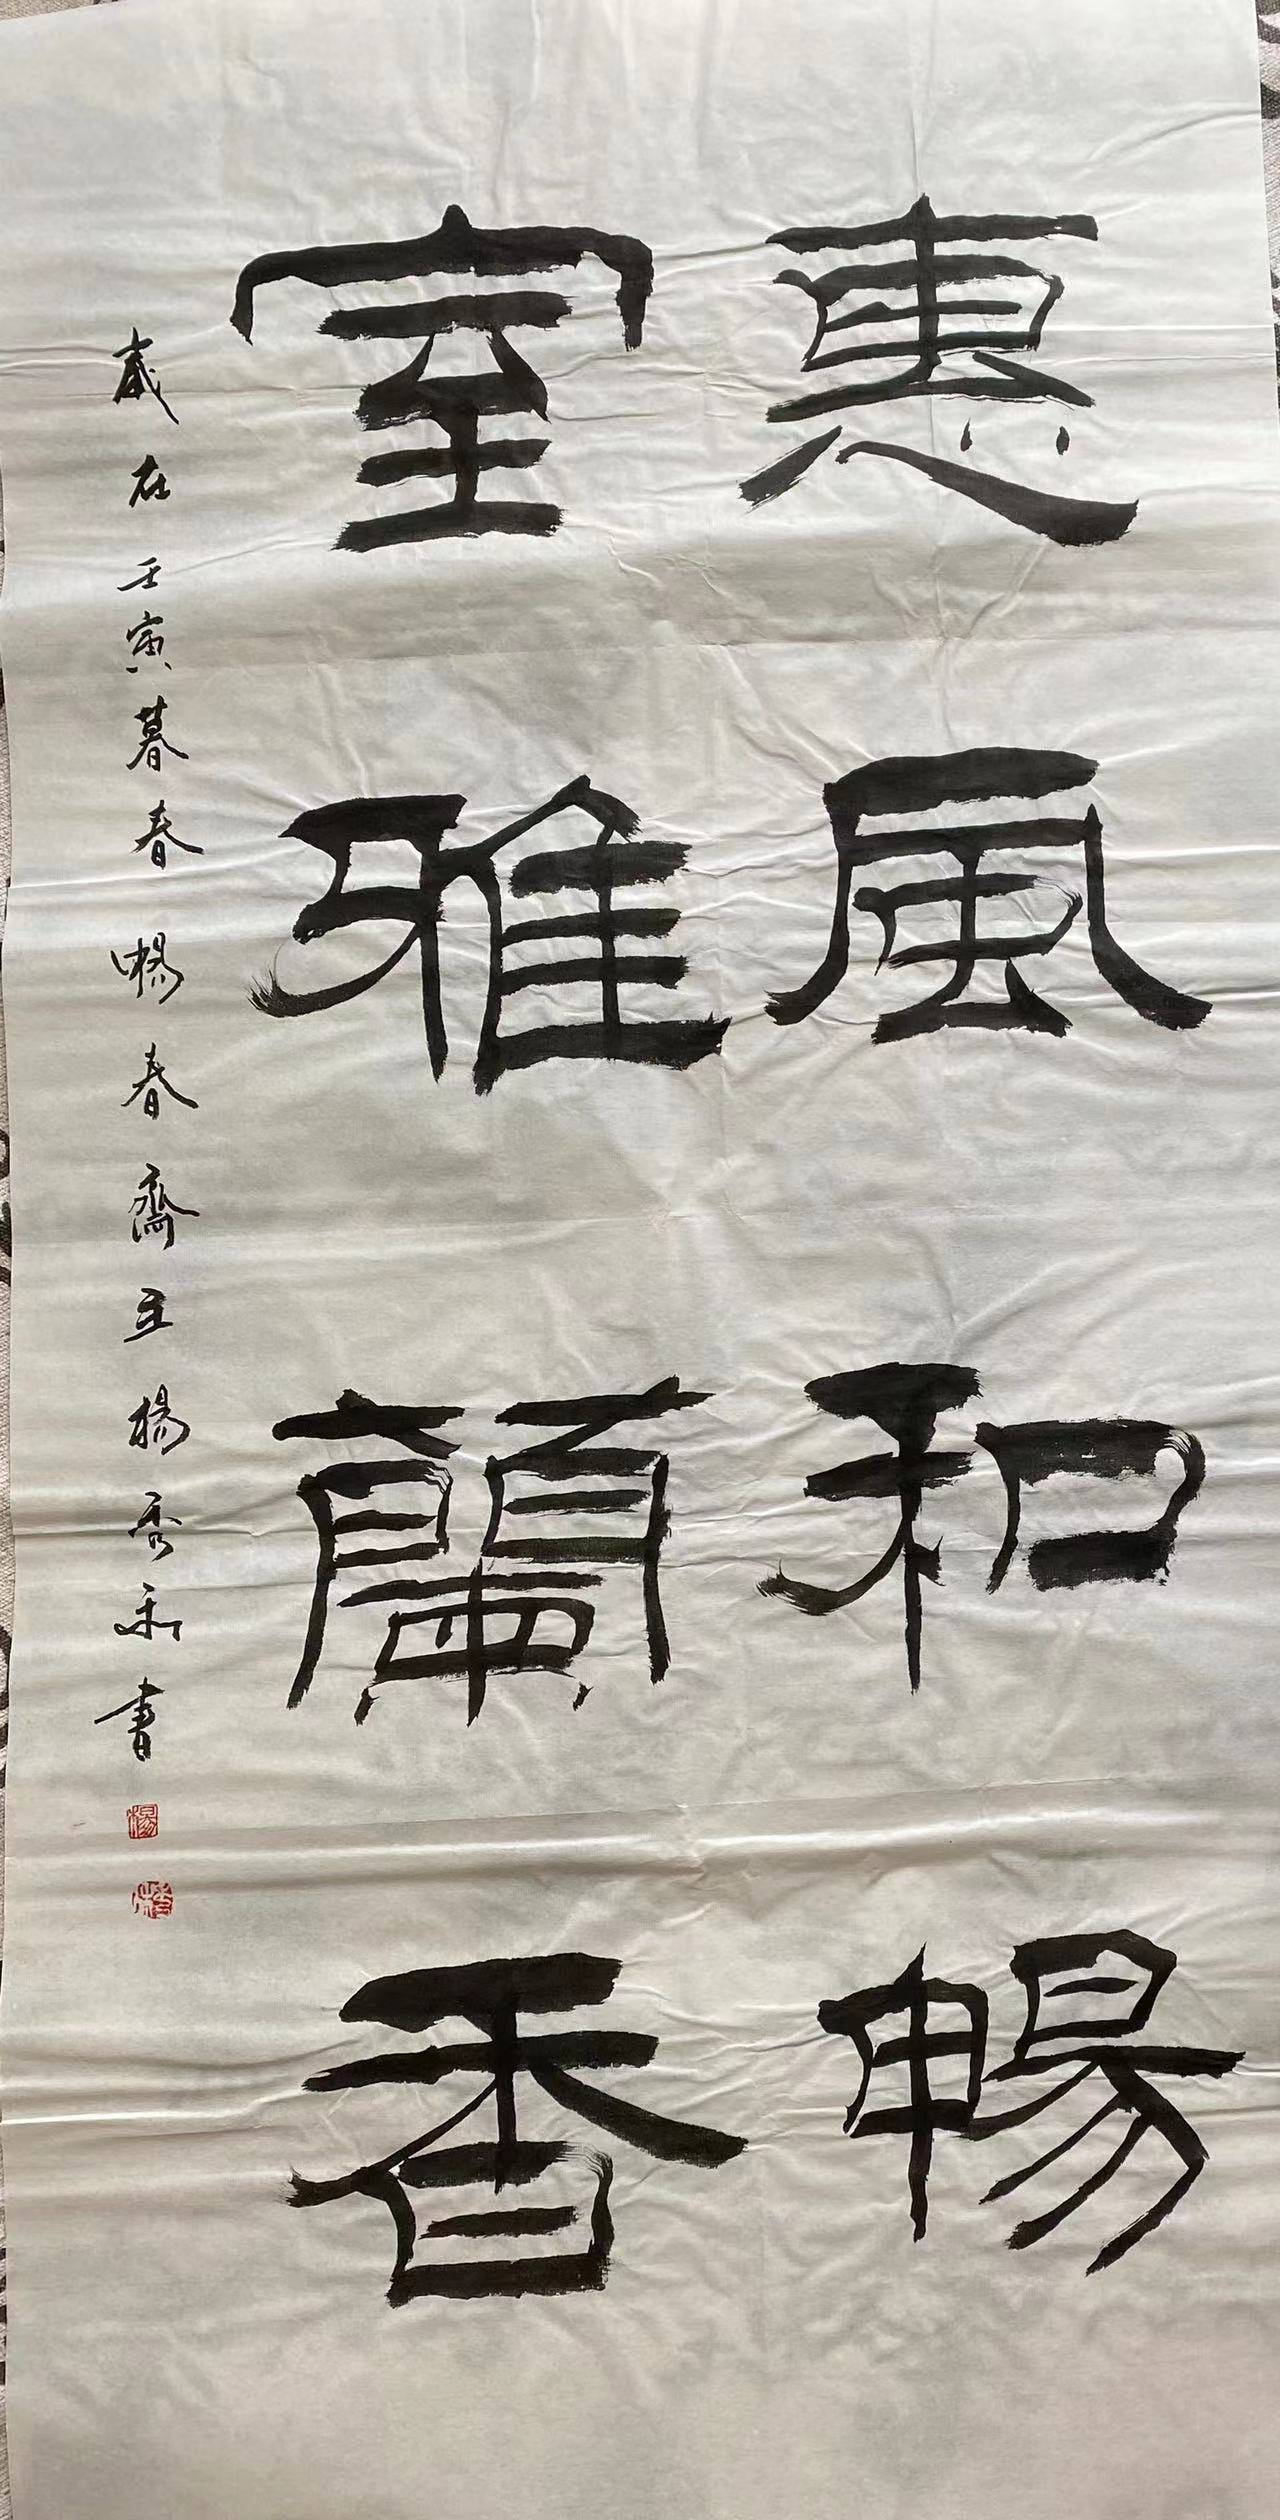 惠風和暢
室雅蘭香
歲在壬寅暮春暢春齋主楊秀和書
楊